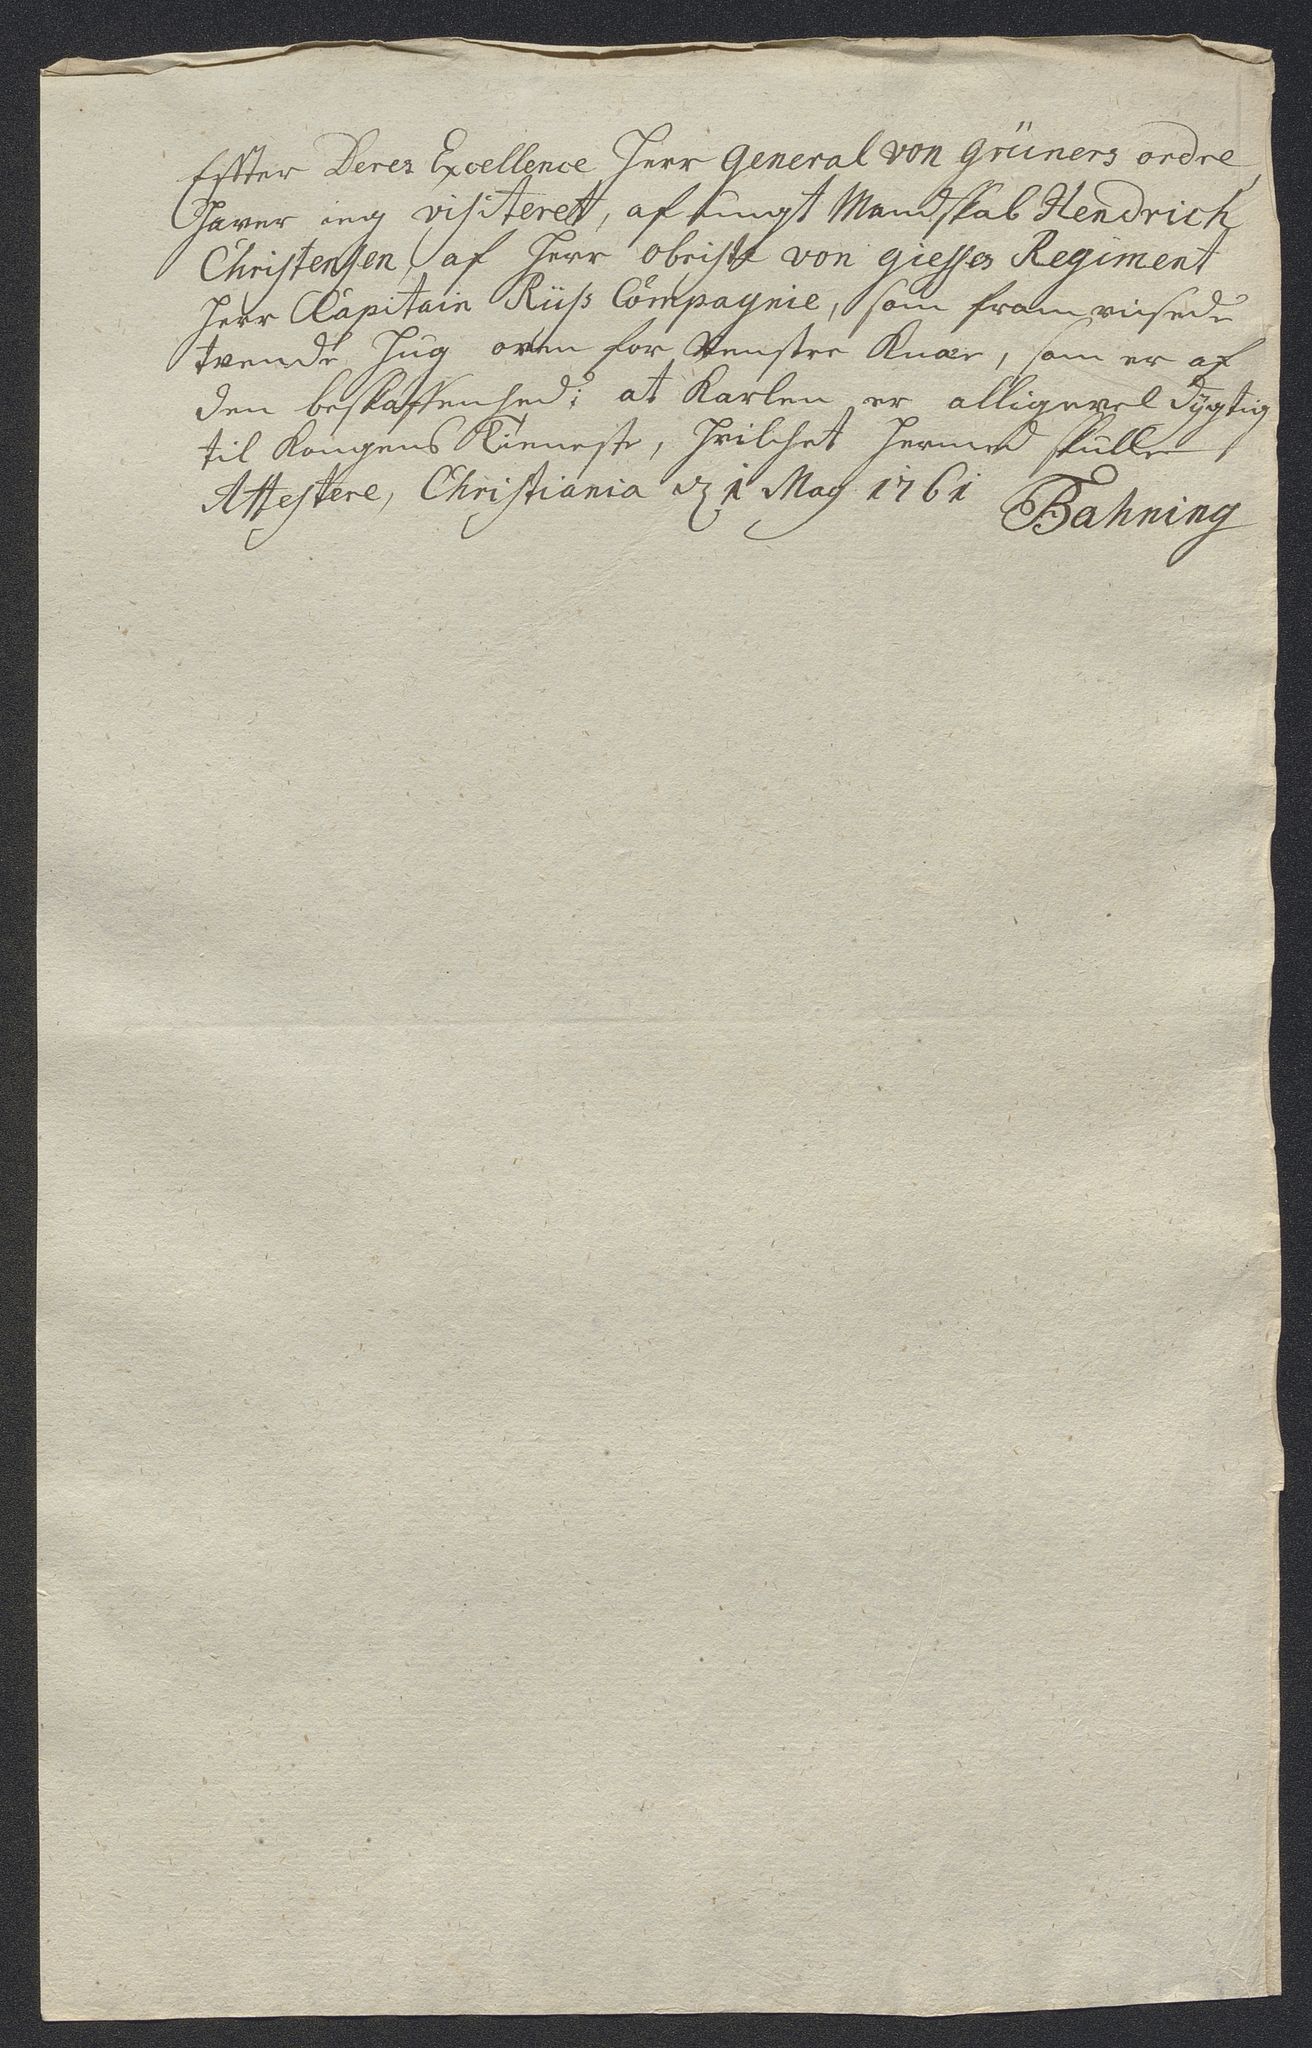 Effter Deres Excellence Herr General von Grüners ordre,
Haver ieg visiteret, af ungt Mandskab Hendrich
Christensen, af Herr obriste von giesses Regiment
Herr Capitain Rüss Compagnie, som fremviisede
tvende Hug oven for Venstre Knæe, som er af
den beskaffenhed; at Karlen er alligevel dygtig
til Kongens Tieneste, hvilchet hermed skulle
Attestere, Christiania d 1 May 1761
Bahning